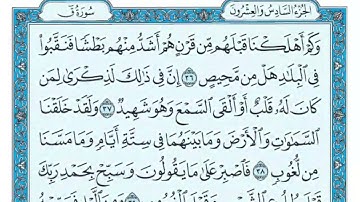 سُورَةُ ق الجُزْءُ السَّادِسُ وَالعِشْرُونَ
وَكَمْ أَهْلَكْنَا قَبْلَهُم مِّن قَرْنٍ هُمْ أَشَدُّ مِنْهُم بَطْشًا فَنَقَّبُوا۟
فِى ٱلْبِلَـٰدِ هَلْ مِن مَّحِيصٍ ٣٦ إِنَّ فِى ذَٰلِكَ لَذِكْرَىٰ لِمَن
كَانَ لَهُۥ قَلْبٌ أَوْ أَلْقَى ٱلسَّمْعَ وَهُوَ شَهِيدٌ ٣٧ وَلَقَدْ خَلَقْنَا
ٱلسَّمَـٰوَٰتِ وَٱلْأَرْضَ وَمَا بَيْنَهُمَا فِى سِتَّةِ أَيَّامٍ وَمَا مَسَّنَا
مِن لُّغُوبٍ ٣٨ فَٱصْبِرْ عَلَىٰ مَا يَقُولُونَ وَسَبِّحْ بِحَمْدِ رَبِّكَ